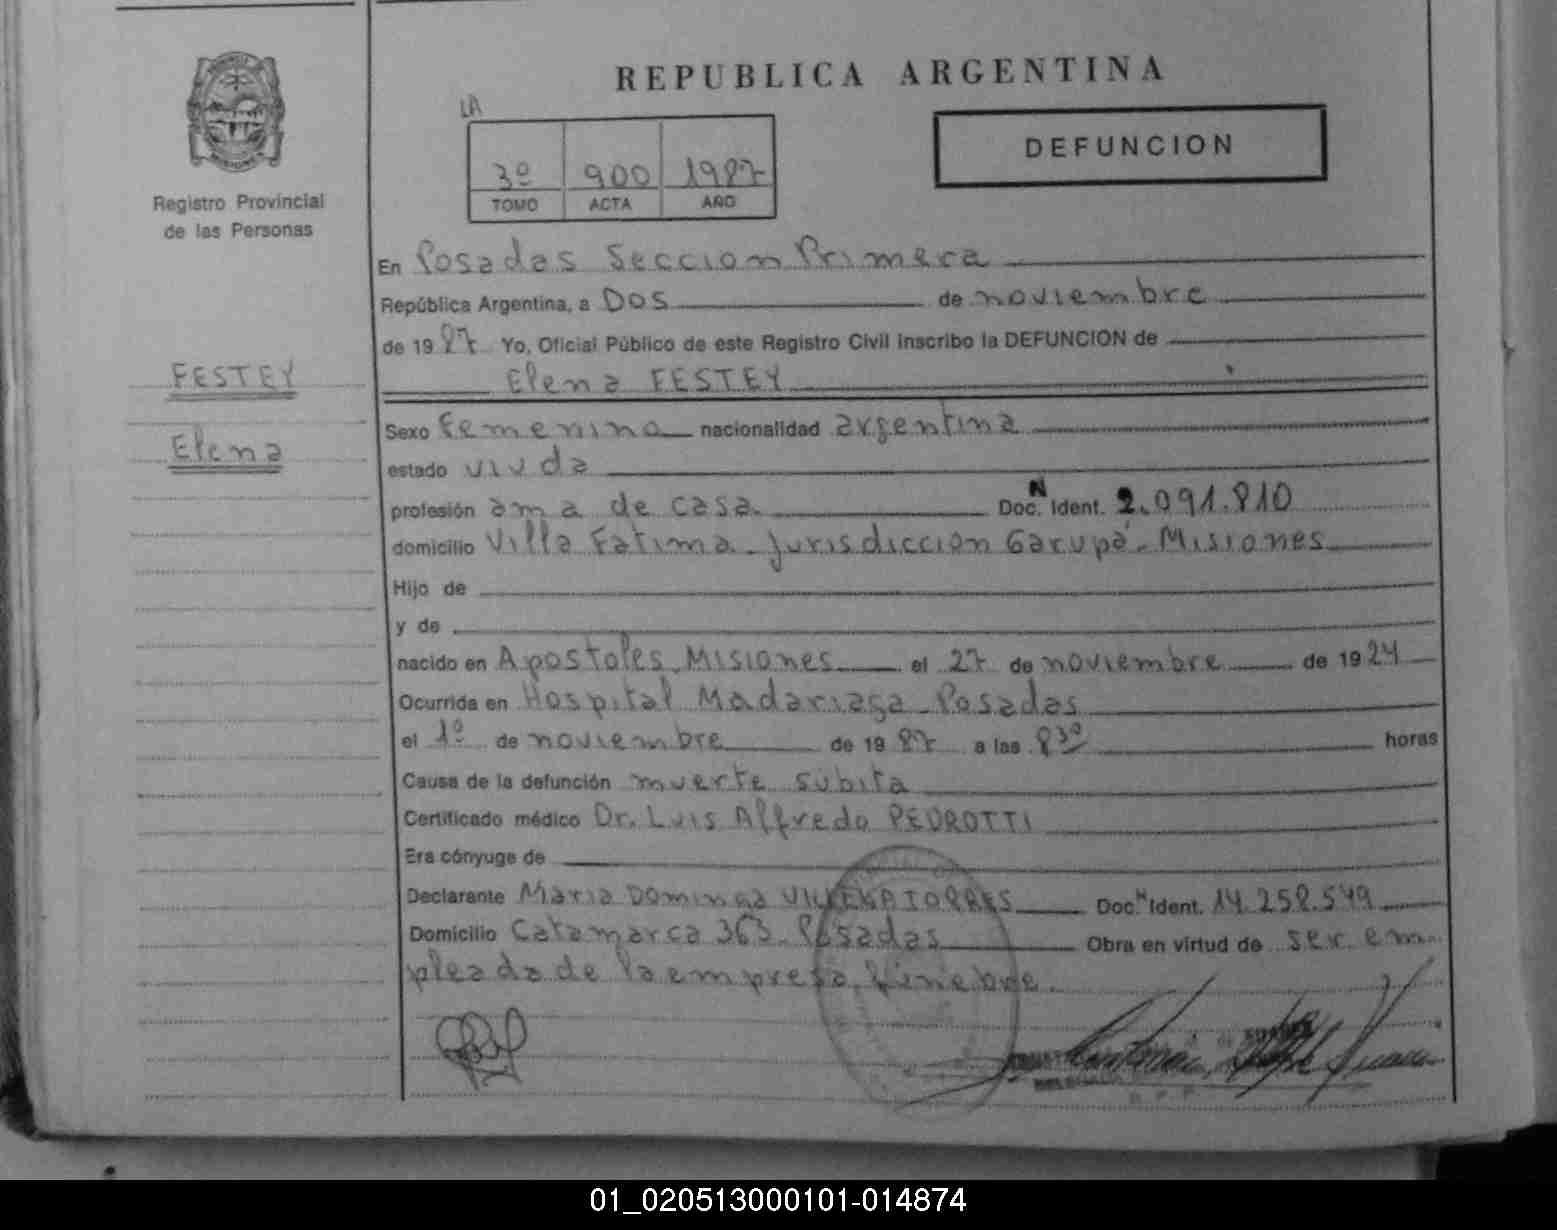 REPUBLICA ARGENTINA
LA
3º 900 1987
TOMO ACTA AÑO
DEFUNCION
MISIONES
Registro Provincial
de las Personas
FESTEY
Elena
En Posadas Seccion Primera
República Argentina, a Dos de noviembre
de 1987 Yo, Oficial Público de este Registro Civil inscribo la DEFUNCION de
Elena FESTEY
Sexo Femenino nacionalidad argentina
estado viuda
profesión ama de casa. Doc. N Ident. 2.091.810
domicilio Villa Fatima - Jurisdiccion Garupá - Misiones
Hijo de
y de
nacido en Apostoles, Misiones el 27 de noviembre de 1924
Ocurrida en Hospital Madariaga - Posadas
el 1º de noviembre de 1987 a las 8³⁰ horas
Causa de la defunción muerte súbita
Certificado médico Dr. Luis Alfredo PEDROTTI
Era cónyuge de
Declarante Maria Dominga TORRES Doc. N Ident. 14.258.549
Domicilio Catamarca 363 - Posadas Obra en virtud de ser em-
pleada de la empresa fúnebre.
01_020513000101-014874